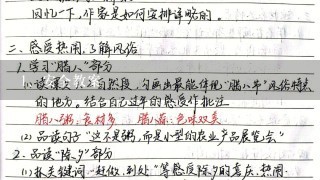 回忆一下,作家是如何安排详略的。
二、感受热闹,了解风俗
1.学习“腊八”部分
自然段,勾画出最能体现“腊八节”风俗特点
的地方。结合自己过年的感受作批注
腊八粥:食材多 腊八蒜:色味双美
(2)品读句子“这不是粥,而是小型的农业产品展览会”
2.品读“除夕”部分
(1)抓关键词,“赶做、到处”等感受除夕的喜庆、热闹